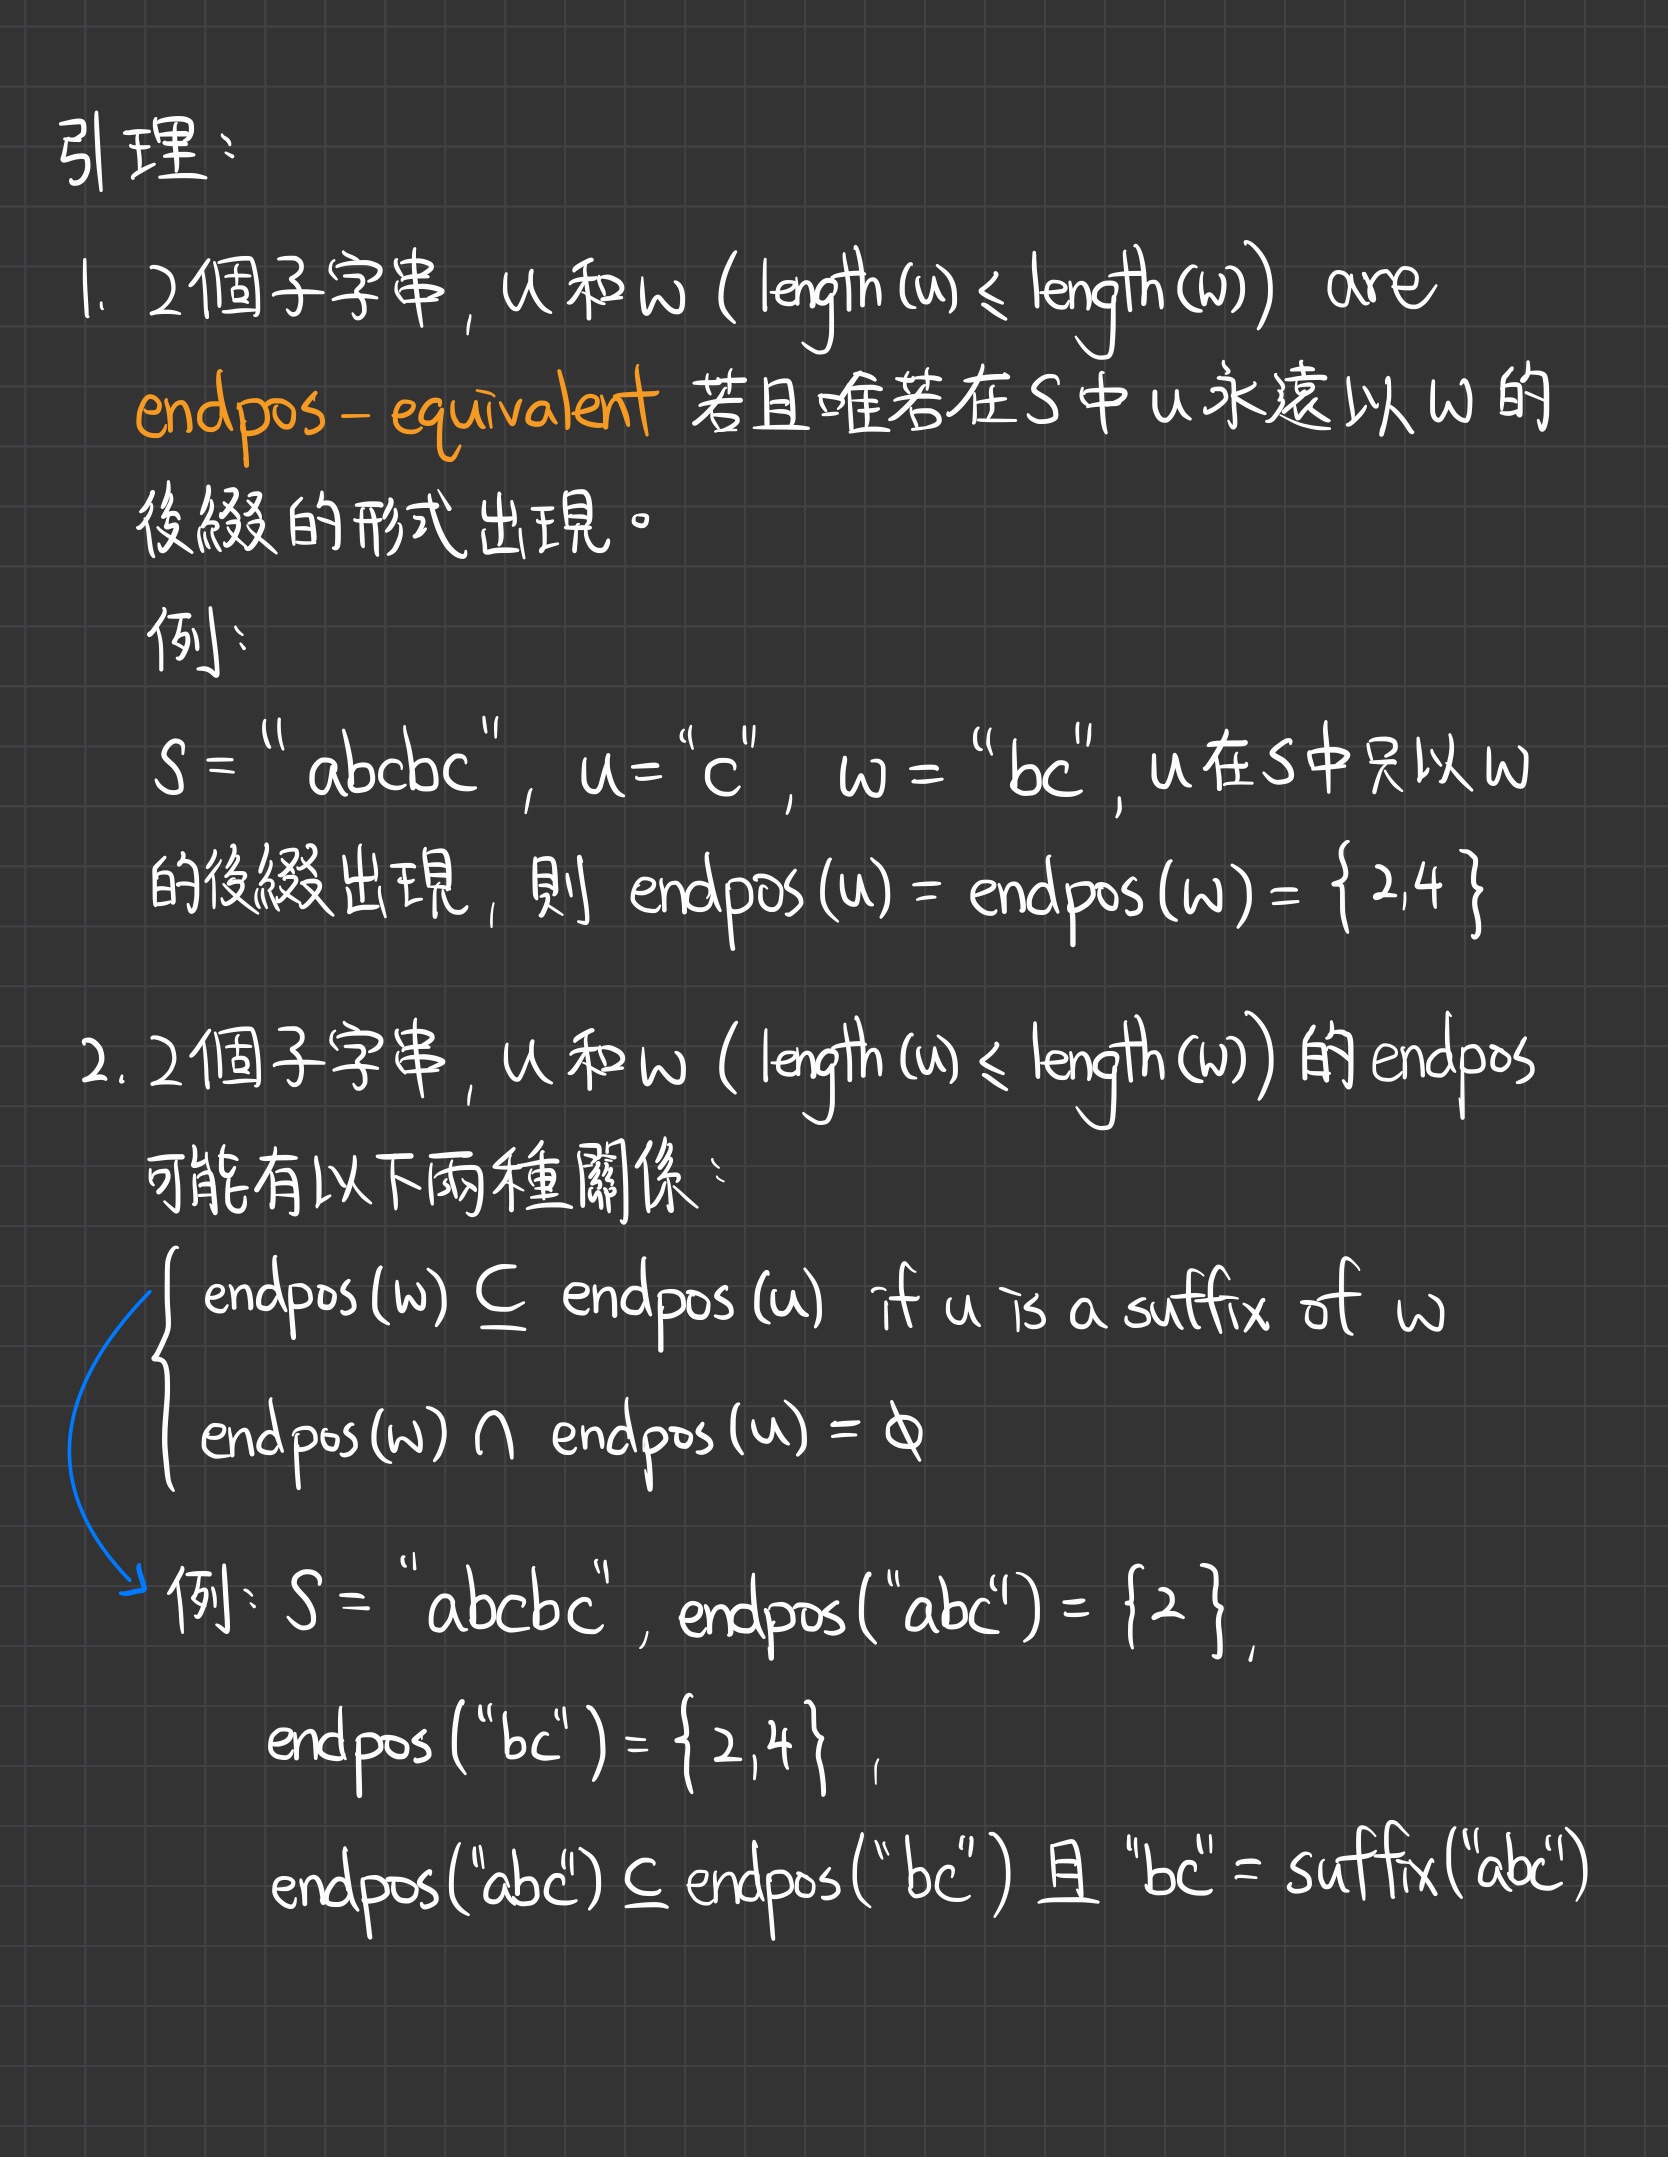 引理：
1. 2個子字串, u 和 w (length(u) ≤ length(w)) are
endpos-equivalent 若且唯若在 S 中 u 永遠以 w 的
後綴的形式出現。
例：
S = "abcbc", u = "c", w = "bc", u 在 S 中只以 w
的後綴出現, 則 endpos(u) = endpos(w) = {2,4}
2. 2個子字串, u 和 w (length(u) ≤ length(w)) 的 endpos
可能有以下兩種關係：
endpos(w) ⊆ endpos(u) if u is a suffix of w
endpos(w) ∩ endpos(u) = ϕ
例：S = "abcbc", endpos("abc") = {2},
endpos("bc") = {2,4},
endpos("abc") ⊆ endpos("bc") 且 "bc" = suffix("abc")